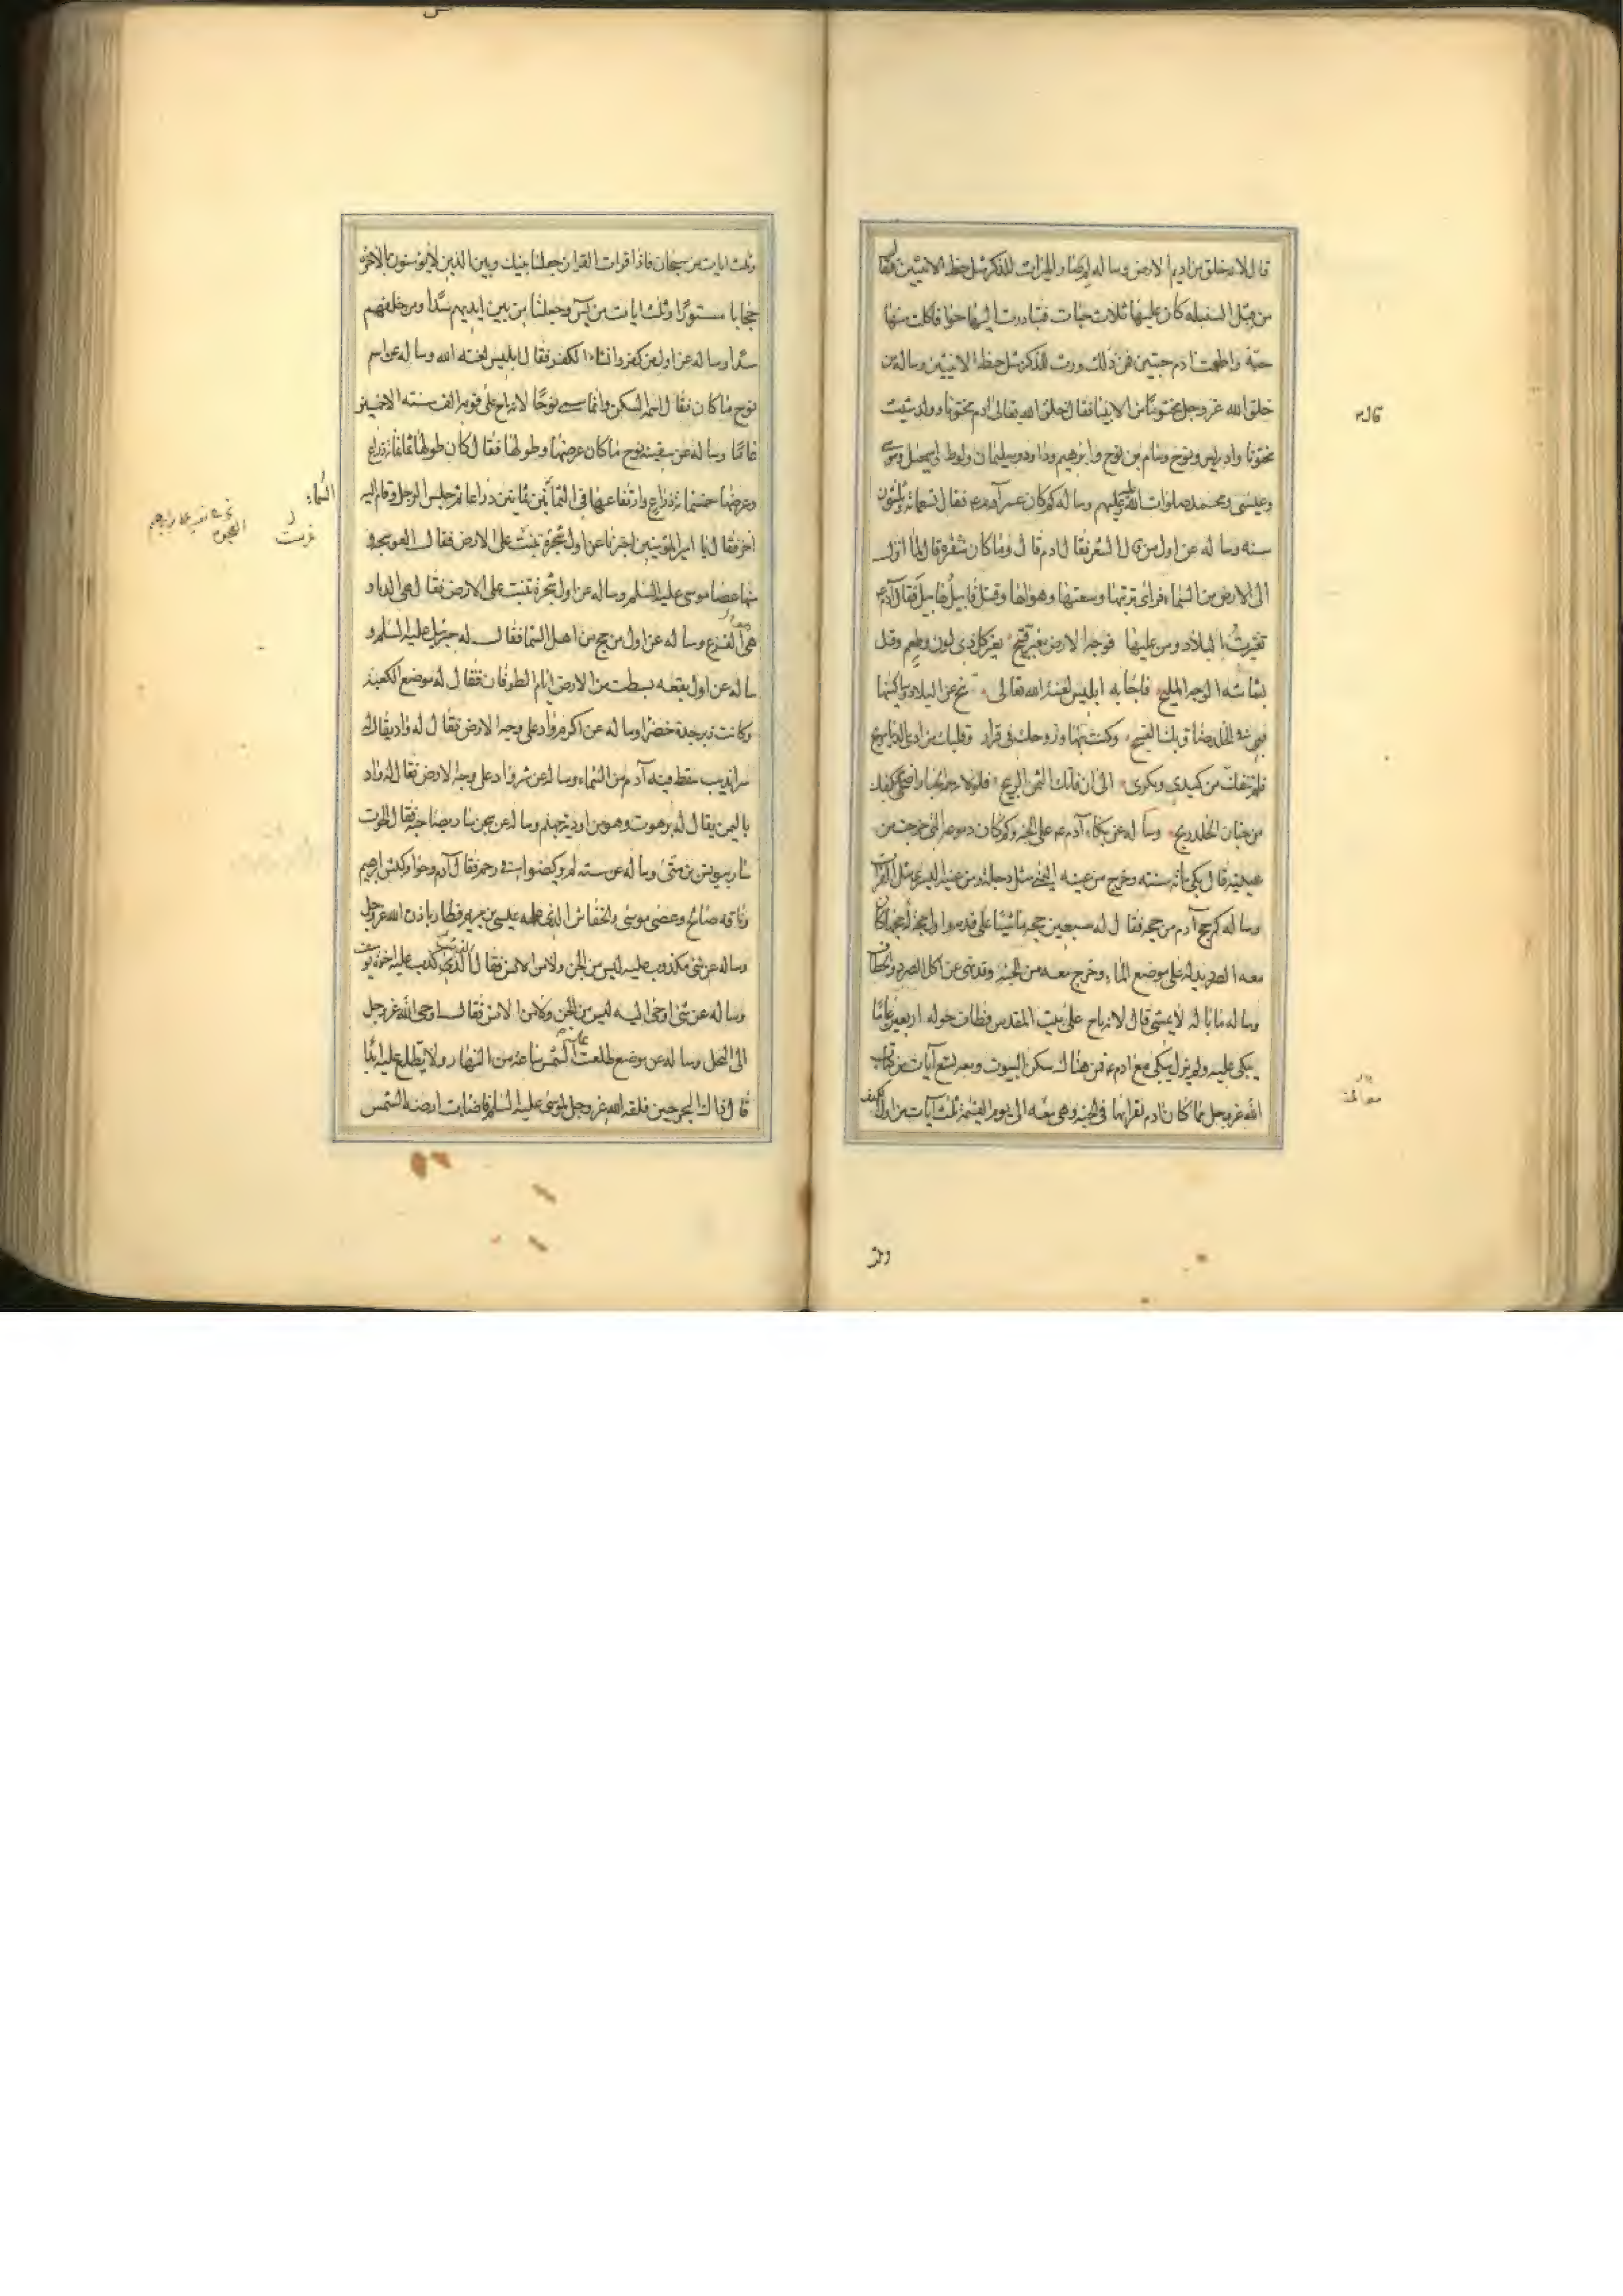 قال لانه خلق من اديم الارض وساله لم صار الميراث للذكر مثل حظ الانثيين فقال
من قبل السنبلة كان عليها ثلاث حبات فبادرت اليها حوا فاكلت منها
حبة واطعمت ادم حبتين فمن ذلك ورث الذكر مثل حظ الانثيين وساله من
خلق الله عز وجل مختونا من الانبيا فقال خلق الله تعالى ادم مختونا وولد شيث
مختونا وادريس ونوح وسام بن نوح وابرهيم وداود وسليمان ولوط واسمعيل وموسى
وعيسى ومحمد صلوات الله عليهم وساله كم كان عمر آدم فقال تسعماية وثلثون
سنه وساله عن اول من قال الشعر فقال ادم قال وما كان شعره قال لما انزل
الى الارض من السماء فراى تربتها وسعتها وهواها وقتل قابيل هابيل فقال آدم
تغيرت البلاد ومن عليها فوجه الارض مغبر قبيح تغير كل ذى لون وطعم وقل
بشاشة الوجه المليح فاجابه ابليس لعنه الله تعالى تنح عن البلاد وساكنيها
ضاق بك الفسيح وكنت بها وزوجك فى قرار وقلبك من اذى الدنيا مريح
فلم تنفك من كيدى ومكرى الى ان فاتك الثمن الربيح فلولا رحمة الجبار اضحى بكفك
من جنان الخلد ريح وساله عن بكاء آدم على الجنة وكم كان دموعه التى خرجت من
عينيه قال بكى مائة سنة وخرج من عينه اليمنى مثل دجلة ومن عينه اليسرى مثل الفرات
وساله كم حج آدم من حجة فقال له سبعين حجة ماشيا على قدميه واول حجة حجها كان
معه الصرد يدله على موضع الماء وخرج معه من الجنة وقد نهى عن اكل الصرد والخطاف
وساله ما باله لا يمشى قال لانه ناح على بيت المقدس فطاف حوله اربعين عاما
يبكى عليه ولم يزل يبكى مع ادم فمن هناك سكن البيوت ومعه تسع آيات من كتاب
الله عز وجل مما كان ادم يقرأها فى الجنة وهى معه الى يوم القيمة ثلث آيات من اول الكهف
وثلث ايات من سبحان فاذا قرات القران جعلنا بينك وبين الذين لا يؤمنون بالاخرة
حجابا مستورا وثلث ايات من يس وجعلنا من بين ايديهم سدا ومن خلفهم
سدا وساله عن اول من كفر وانشاء الكفر فقال ابليس لعنه الله وساله عن اسم
نوح ما كان فقال اسمه السكن وانما سمى نوحا لانه ناح على قومه الف سنة الا خمسين
عاما وساله عن سفينة نوح ما كان عرضها وطولها فقال كان طولها ثمانمائة ذراع
وعرضها خمسمائة ذراع وارتفاعها فى السماء ثمانين ذراعا ثم جلس الرجل وقام اليه
اخر فقال يا امير المؤمنين اخبرنا عن اول شجرة غرست على الارض فقال العوسجة و
منها عصا موسى عليه السلم وساله عن اول شجرة نبتت على الارض فقال هى الدبا و
هى القرع وساله عن اول من حج من اهل السما فقال له جبرئيل عليه السلم و
ساله عن اول بقعة بسطت من الارض ايام الطوفان فقال له موضع الكعبة
وكانت زبرجدة خضرا وساله عن اكرم واد على وجه الارض فقال له واد يقال له
سرانديب سقط فيه آدم من السماء وساله عن شر واد على وجه الارض فقال له واد
باليمن يقال له برهوت وهو من اودية جهنم وساله عن سجن سار بصاحبه فقال الحوت
سار بيونس بن متى وساله عن ستة لم يركضوا فى رحم فقال آدم وحوا وكبش ابراهيم
وناقة صالح وعصى موسى والخفاش الذى عمله عيسى بن مريم فطار باذن الله عز وجل
وساله عن شى مكذوب عليه ليس من الجن ولا من الانس فقال الذئب الذى كذب عليه اخوة يوسف
وساله عن شى اوحى اليه ليس من الجن ولا من الانس فقال اوحى الله عز وجل
الى النحل وساله عن موضع طلعت عليه الشمس ساعة من النهار ولا تطلع عليه ابدا
قال ذاك البحر حين فلقه الله عز وجل لموسى عليه السلم فاصابت ارضه الشمس
السماء
غرست
وثلث